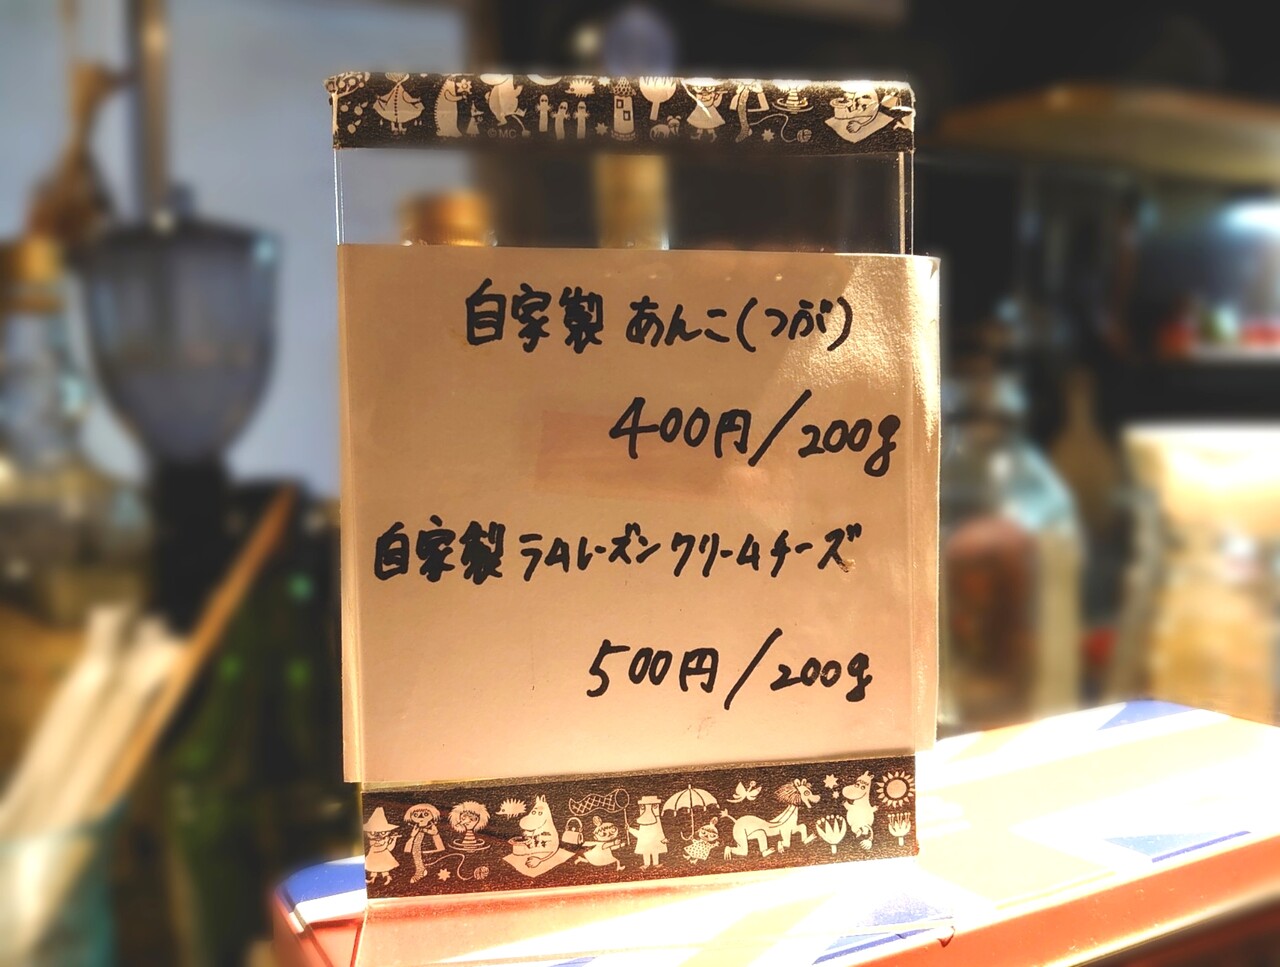 自家製 あんこ(つぶ)
400円/200g
自家製 ラムレーズンクリームチーズ
500円/200g
©MC